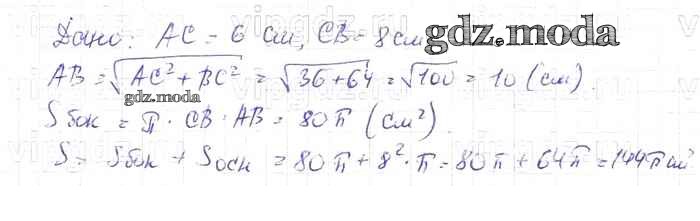 Дано: AC = 6 см, CB = 8 см
gdz.moda
AB = √AC² + BC² = √36+64 = √100 = 10 (см).
gdz.moda
Sбок = π · CB · AB = 80π (см²)
S = Sбок + Sосн = 80π + 8² · π = 80π + 64π = 144π см